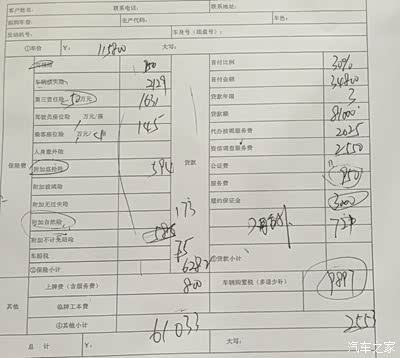 客户姓名: 联系电话: 联系地址:
购车型号: 生产代码: 车色:
发动机号: 车身号(底盘号):
①车价 Y: 115800 大写:
保险费
950
车辆损失险 2129
第三责任险 50万元 1631
驾驶员座位险 万元/座 145
乘客座位险 万元/座
人身意外险
附加盗抢险 394
附加玻璃险
附加无过失险
附加自然险 173
附加不计免赔险 585
车船税 75
②保险小计 6282
贷款
首付比例 30%
首付金额 34800
贷款年限 3
贷款额 81000
代办按揭服务费 2025
资信调查服务费 2550
公证费
服务费 950
履约保证金 3000
720
③贷款小计
其他
上牌费(含服务费) 800
临牌工本费
车辆购置税(多退少补) 9897
④其他小计 61033
2553
总 计 Y: 大写:
汽车之家